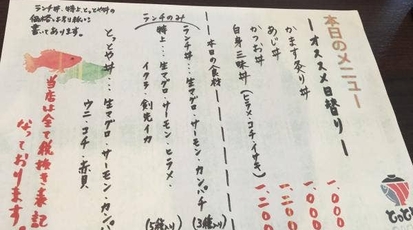 本日のメニュー
ーオススメ日替りー
かます炙り丼
一、〇〇〇
あじ丼
一、〇〇〇
かつお丼
一、二〇〇
白身三昧丼（ヒラメ・コチ・イサキ）
一、二〇〇
ー本日の食材ー
ランチのみ
ランチ丼…生マグロ・サーモン・カンパチ
(3種入り)
特上…生マグロ・サーモン・ヒラメ・
イクラ・剣先イカ
(5種入り)
とっとや丼…生マグロ・サーモン・カンパ
ウニ・コチ・赤貝
ランチ丼、特上、とっとや丼の
書いてあります。
当店は全て税抜き表記
なっております。